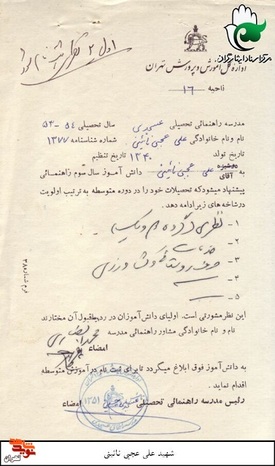 مرکز اسناد ایثارگران
اداره کل آموزش و پرورش تهران
ناحیه ۱۶
مدرسه راهنمائی تحصیلی عسجدی سال تحصیلی ۵۴-۵۳
نام و نام خانوادگی علی عجبی نائینی شماره شناسنامه ۱۳۷۷
تاریخ تولد ۱۳۴۰ تاریخ تنظیم
به دوشیزه آقای علی عجبی نائینی دانش آموز سال سوم راهنمائی
پیشنهاد میشود که تحصیلات خود را در دوره متوسطه به ترتیب اولویت
در شاخه های زیر ادامه دهد.
۱ - نظری
۲ - خدمات
۳ -
۴ -
این نظر مشورتی است. اولیای دانش آموزان در رد یا قبول آن مختارند
نام و نام خانوادگی مشاور راهنمائی مدرسه
امضاء
به دانش آموز فوق ابلاغ میگردد تا برای ثبت نام در آموزش متوسطه
اقدام نماید.
رئیس مدرسه راهنمائی تحصیلی امضاء
شهید علی عجبی نائینی